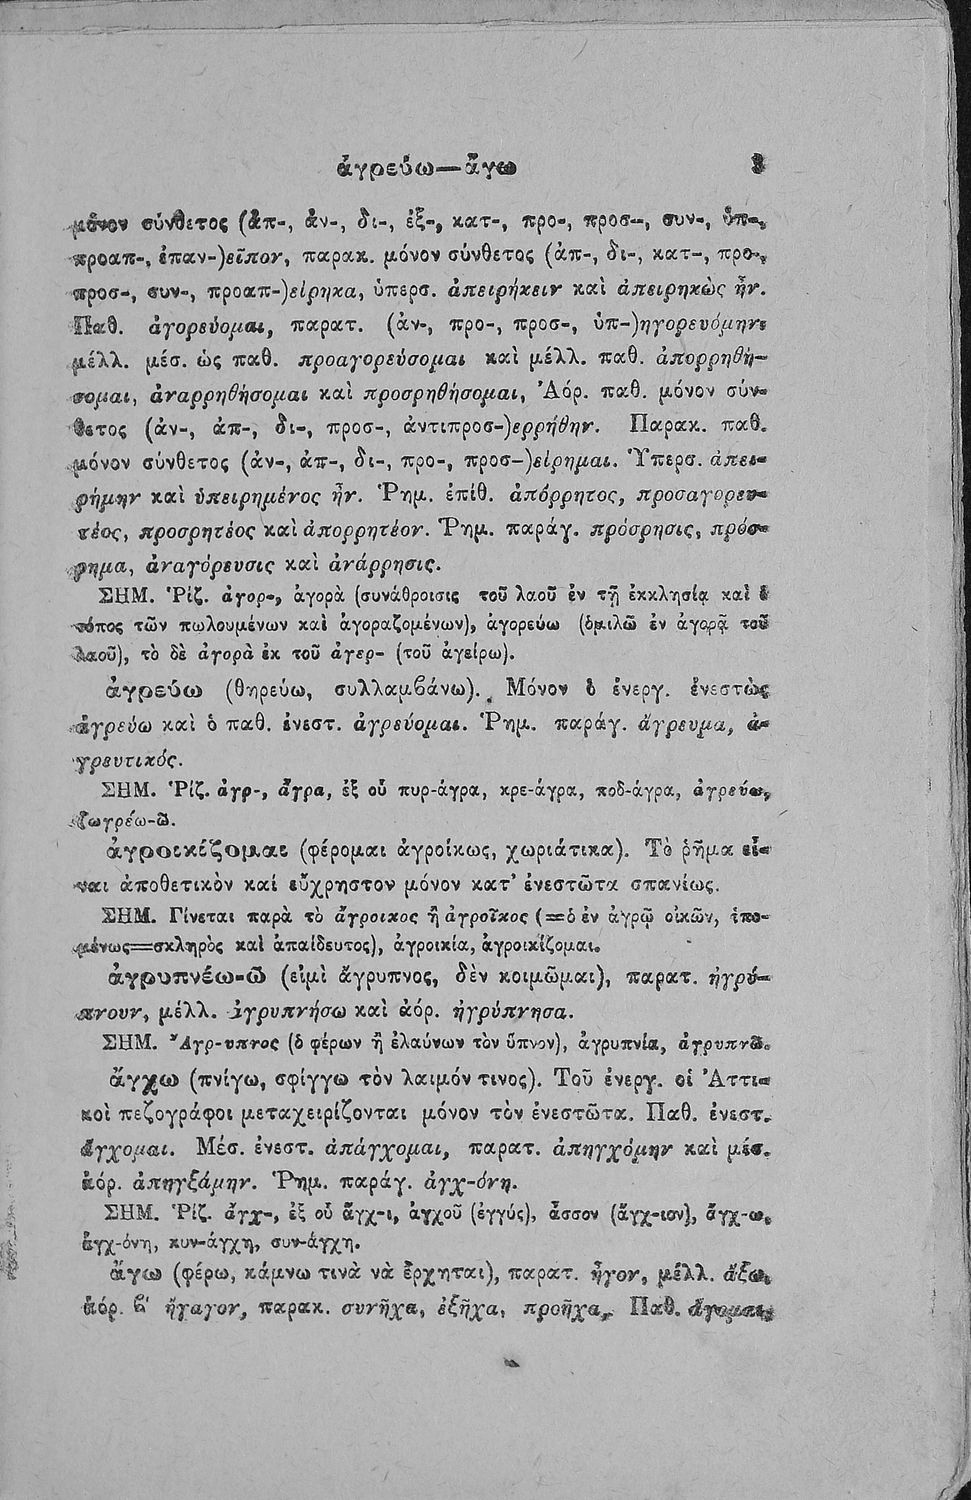 ἀγρεύω—ἄγω 3
μόνον σύνθετος (ἀπ-, ἀν-, δι-, ἐξ-, κατ-, προ-, προσ-, συν-, ὑπ-,
προαπ-, ἐπαν-)εῖπον, παρακ. μόνον σύνθετος (ἀπ-, δι-, κατ-, προ-,
προσ-, συν-, προαπ-)είρηκα, ὑπερσ. ἀπειρήκειν καὶ ἀπειρηκὼς ἦν.
Παθ. ἀγορεύομαι, παρατ. (ἀν-, προ-, προσ-, ὑπ-)ηγορευόμην,
μέλλ. μέσ. ὡς παθ. προαγορεύσομαι καὶ μέλλ. παθ. ἀπορρηθή-
σομαι, ἀναρρηθήσομαι καὶ προσρηθήσομαι, Ἀόρ. παθ. μόνον σύν-
θετος (ἀν-, ἀπ-, δι-, προσ-, ἀντιπροσ-)ερρήθην. Παρακ. παθ.
μόνον σύνθετος (ἀν-, ἀπ-, δι-, προ-, προσ-)είρημαι. Ὑπερσ. ἀπει-
ρήμην καὶ ὑπειρημένος ἦν. Ῥημ. ἐπίθ. ἀπόρρητος, προσαγορευ-
τέος, προσρητέος καὶ ἀπορρητέον. Ῥημ. παράγ. πρόσρησις, πρόσ-
ρημα, ἀναγόρευσις καὶ ἀνάρρησις.
ΣΗΜ. Ῥίζ. ἀγορ-, ἀγορὰ (συνάθροισις τοῦ λαοῦ ἐν τῇ ἐκκλησίᾳ καὶ ὁ
τόπος τῶν πωλουμένων καὶ ἀγοραζομένων), ἀγορεύω (ὁμιλῶ ἐν ἀγορᾷ τοῦ
λαοῦ), τὸ δὲ ἀγορὰ ἐκ τοῦ ἀγερ- (τοῦ ἀγείρω).
ἀγρεύω (θηρεύω, συλλαμβάνω). Μόνον ὁ ἐνεργ. ἐνεστὼς
ἀγρεύω καὶ ὁ παθ. ἐνεστ. ἀγρεύομαι. Ῥημ. παράγ. ἄγρευμα, ἀ-
γρευτικός.
ΣΗΜ. Ῥίζ. ἀγρ-, ἄγρα, ἐξ οὗ πυρ-άγρα, κρε-άγρα, ποδ-άγρα, ἀγρεύω,
ζωγρέω-ῶ.
ἀγροικίζομαι (φέρομαι ἀγροίκως, χωριάτικα). Τὸ ῥῆμα εἶ-
ναι ἀποθετικὸν καί εὔχρηστον μόνον κατ' ἐνεστῶτα σπανίως.
ΣΗΜ. Γίνεται παρὰ τὸ ἄγροικος ἢ ἀγροῖκος (=ὁ ἐν ἀγρῷ οἰκῶν, ἑπο-
μένως=σκληρὸς καὶ ἀπαίδευτος), ἀγροικία, ἀγροικίζομαι.
ἀγρυπνέω-ῶ (εἰμὶ ἄγρυπνος, δὲν κοιμῶμαι), παρατ. ἠγρύ-
πνουν, μέλλ. ἀγρυπνήσω καὶ ἀόρ. ἠγρύπνησα.
ΣΗΜ. Ἄγρ-υπνος (ὁ φέρων ἢ ἐλαύνων τὸν ὕπνον), ἀγρυπνία, ἀγρυπνῶ.
ἄγχω (πνίγω, σφίγγω τὸν λαιμόν τινος). Τοῦ ἐνεργ. οἱ Ἀττι-
κοὶ πεζογράφοι μεταχειρίζονται μόνον τὸν ἐνεστῶτα. Παθ. ἐνεστ.
ἄγχομαι. Μέσ. ἐνεστ. ἀπάγχομαι, παρατ. ἀπηγχόμην καὶ μέσ.
ἀόρ. ἀπηγξάμην. Ῥημ. παράγ. ἀγχ-όνη.
ΣΗΜ. Ῥίζ. ἄγχ-, ἐξ οὗ ἄγχ-ι, ἀγχοῦ (ἐγγύς), ἆσσον (ἄγχ-ιον), ἄγχ-ω,
ἀγχ-όνη, κυν-άγχη, συν-άγχη.
ἄγω (φέρω, κάμνω τινὰ νὰ ἔρχηται), παρατ. ἦγον, μέλλ. ἄξω,
ἀόρ. β' ἤγαγον, παρακ. συνῆχα, ἐξῆχα, προῆχα, Παθ. ἄγομαι,